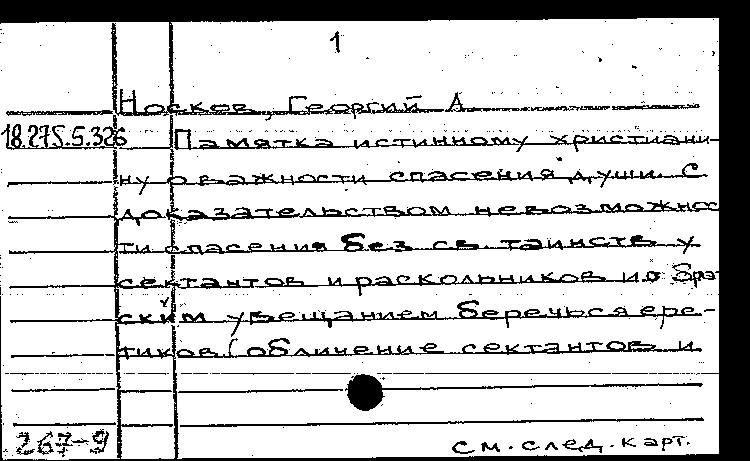 1
Носков, Георгий А.
18.275.5.326 Памятка истинному христиани-
ну о важности спасения души. С
доказательством невозможнос
ти спасения без св. таинств у
сектантов и раскольников и с
ским увещанием беречься ере-
тиков (обличение сектантов и
267-9
см. след. карт.